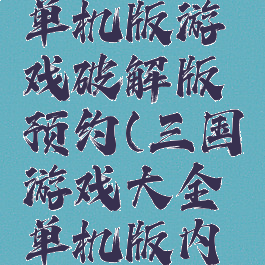 单机版游
戏破解版
预约(三国
游戏大全
单机版内